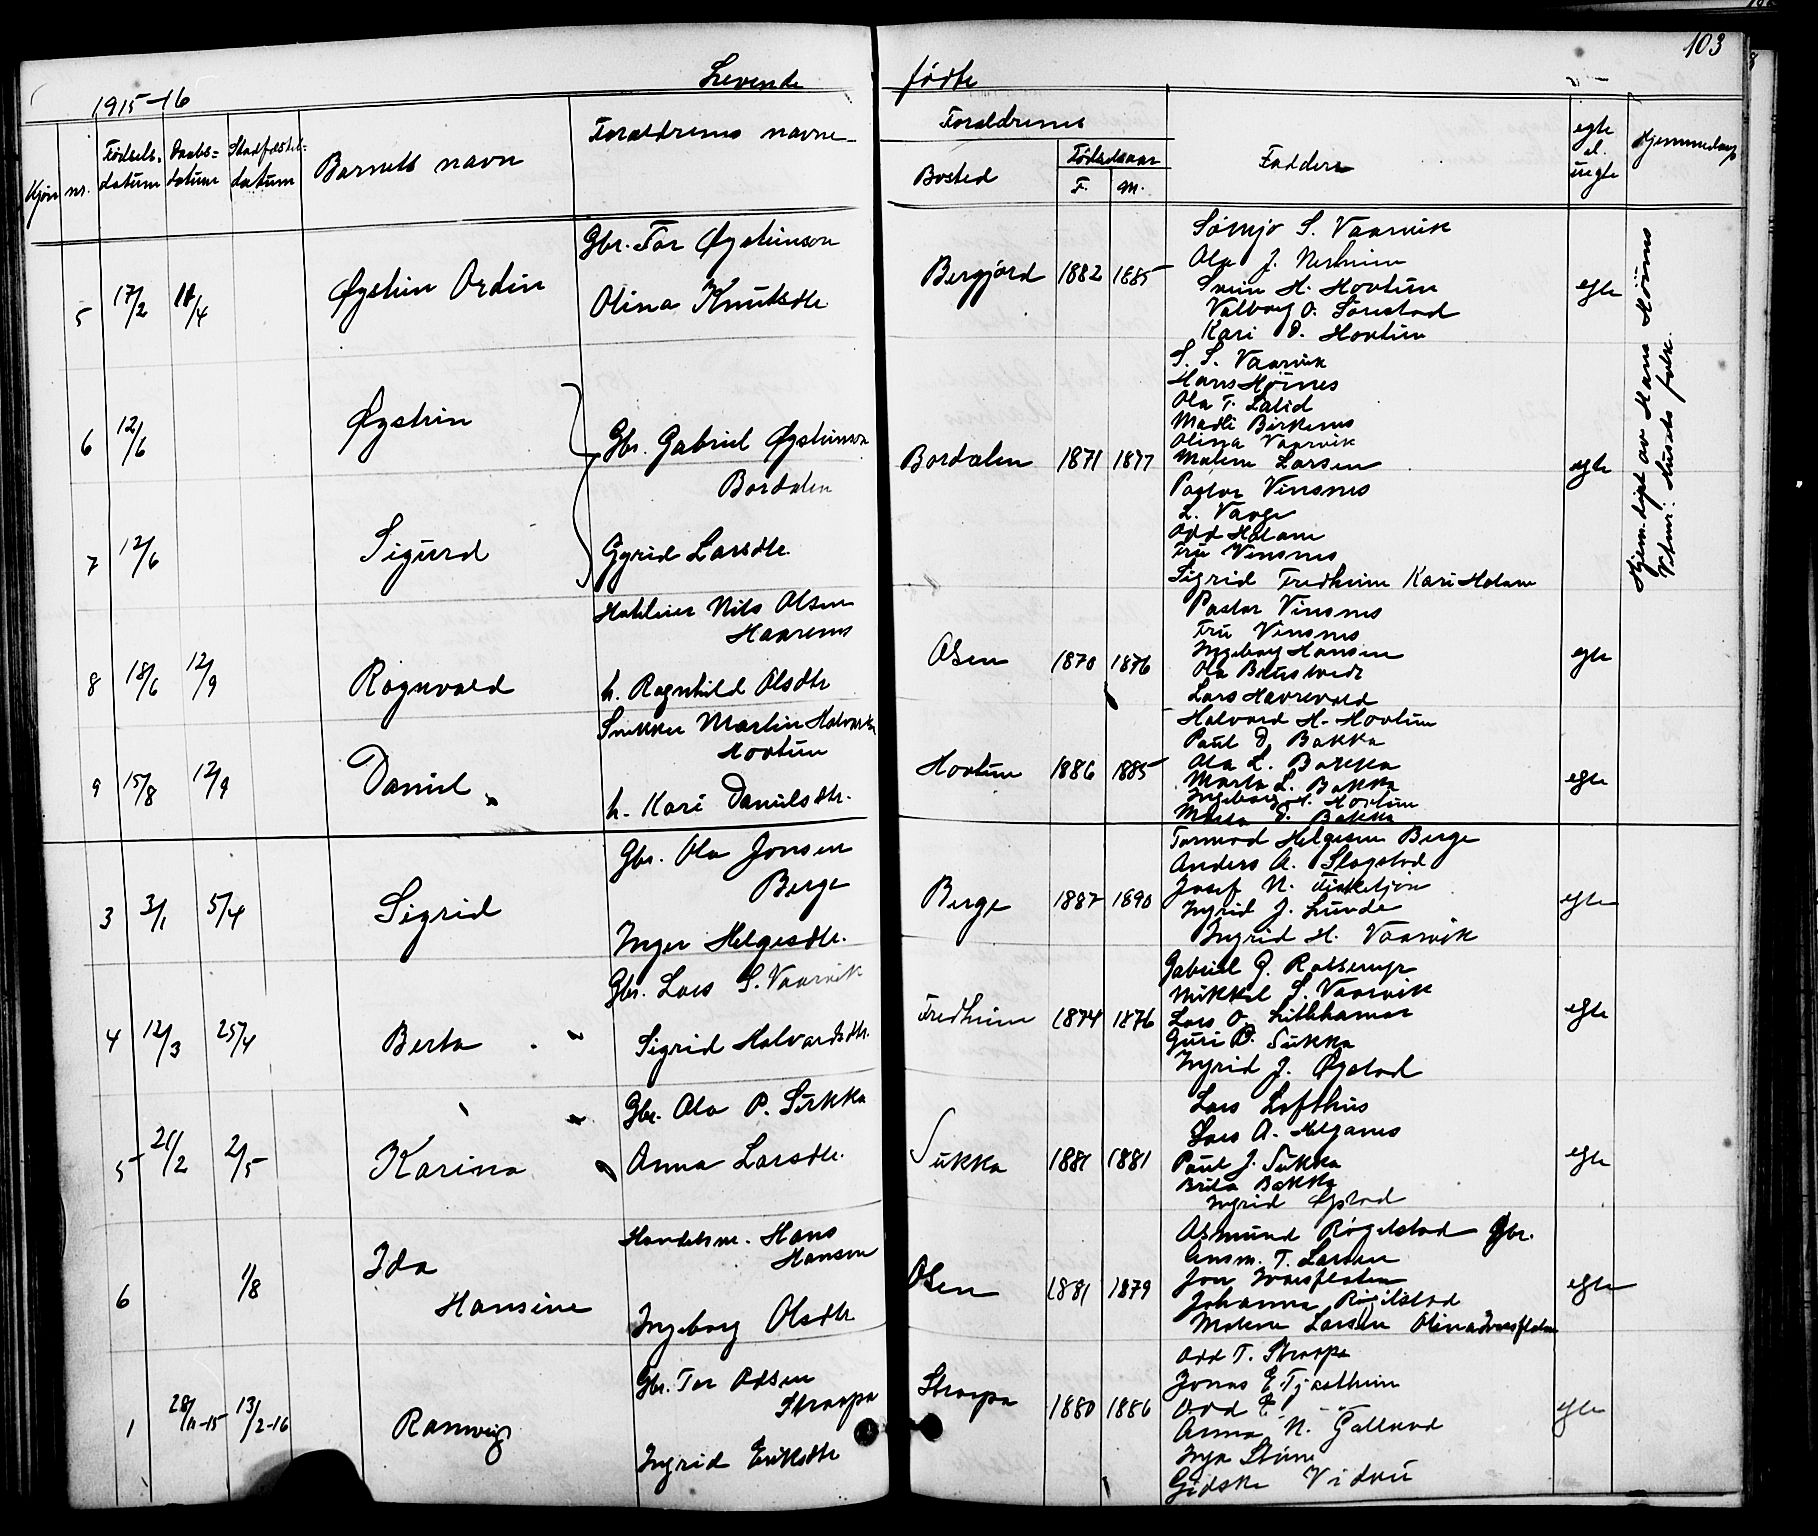 103
Levende fødte
1915-16
Kjøn nr. Fødsels-datum Daabs-datum Stadfæstel-datum Barnets navn Foraldrenes navne
Foraldrenes Bosted Fødselsaar F. M. Faddere egte el. uegte Hjemmedaap
5 17/2 11/4 Øystein Ordin
Gbr. Tor Øysteinson
Olina Knutsdtr.
Bergjord 1882 1885 egte
S. Vaarvik
Ola J. Nesheim
Svein H. Hovtun
Valborg O. Sørestad
Kari D. Hovtun
6 12/6 Øystein
7 12/6 Sigurd
Gbr. Gabriel Øysteinson
Bordalen
Gyrid Larsdtr.
Bordalen 1871 1877 egte
S. S. Vaarvik
Hans Høines
Ola T. Lalid
Madli Birkenes
Olina Vaarvik
Malene Larsen
Pastor Vinsnes
L. Vaage
Odd Holam
Fru Vinsnes
Sigrid Fredheim Kari Holam
Hjem.døpt av Hans Høines
Vitner: Husets folk.
8 18/6 12/9 Ragnvald
Hoteleier Nils Olsen
Haarenes
h. Ragnhild Olsdtr
Osen 1870 1876 egte
Pastor Vinsnes
Fru Vinsnes
Ingeborg Hansen
Ola Brustveit
Lars Havrevold
9 15/8 12/9 Daniel
Snekker Martin Halvorsen
Hovtun
h. Kari Danielsdtr.
Hovtun 1886 1885 egte
Halvard H. Hovtun
Paul D. Bakka
Ola L. Bakka
Marta L. Bakka
Ingeborg H. Hovtun
Marta D. Bakka
3 3/1 5/4 Sigrid
Gbr. Ola Jonsen
Berge
Inger Helgesdtr.
Berge 1887 1890 egte
Tormod Helgesen Berge
Anders A. Slagstad
Josef N. Fisketjøn
Ingrid J. Lunde
Ingrid H. Vaarvik
4 12/3 25/4 Berta
Gbr. Lars S. Vaarvik
Sigrid Halvardsdtr.
Fredheim 1874 1876 egte
Gabriel G.
Mikkel S. Vaarvik
Lars O. Litlehamar
Guri P. Sukka
Ingrid J. Øystad
5 21/2 2/5 Karina
Gbr. Ola P. Sukka
Anna Larsdtr.
Sukka 1881 1881 egte
Lars Lofthus
Lars A. Helganes
Paul J. Sukka
Brita Bakka
Ingrid Øystad
6 1/8 Ida
Hansine
Handelsm. Hans
Hansen
Ingeborg Olsdtr
Osen 1881 1879 egte
Asmund Røgelstad Gbr.
Ansm. T. Larsen
Jon Ivarsflaten
Johanna Røgilstad
Malene Larsen Olina Ivarsflaten
1 28/11-15 13/2-16 Ranveig
Gbr. Tor Odsen
Straapa
Ingrid Eriksdtr
Straapa 1880 1886 egte
Odd T. Straapa
Jonas E. Tjeltheim
Odd E. " "
Anna N. Gallund
Inga Stune
Gidske Vidvei